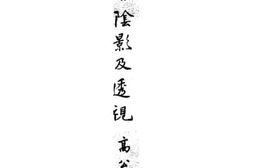 陰影及透視 高